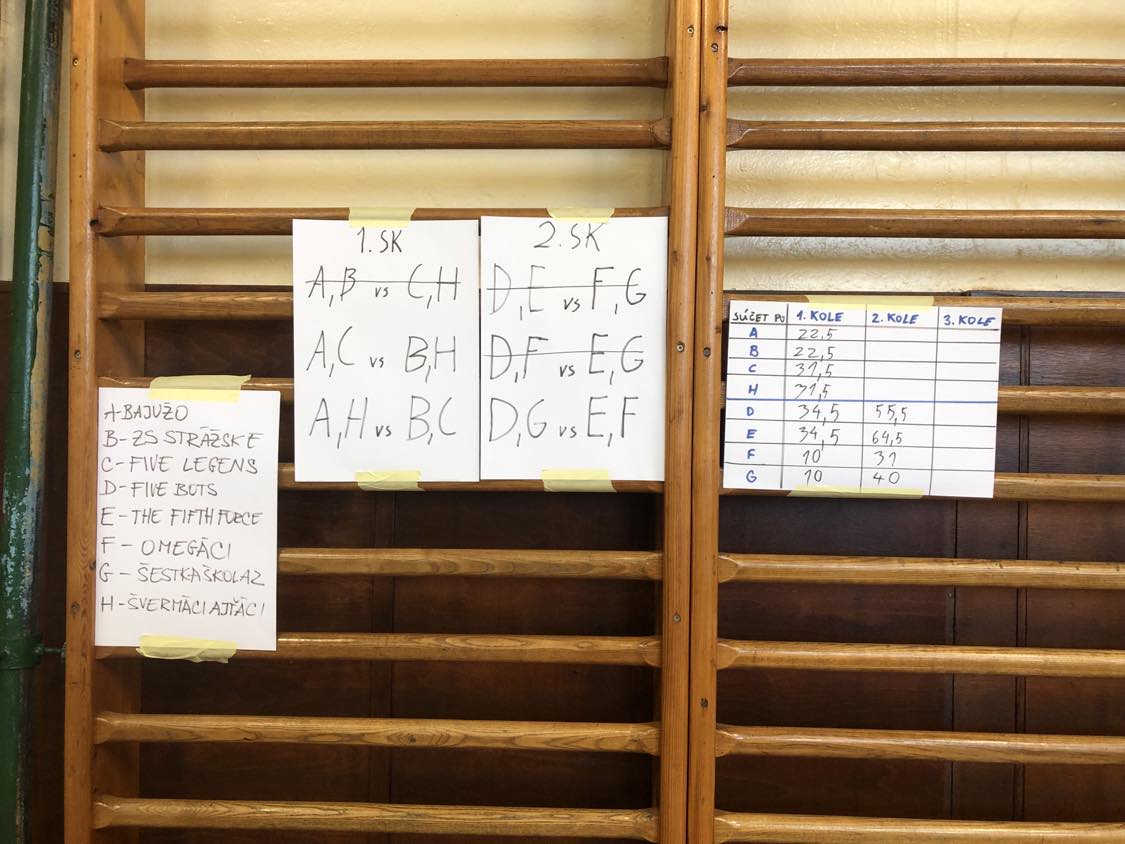 1. SK
A, B vs C, H
A, C vs B, H
A, H vs B, C
2. SK
D, E vs F, G
D, F vs E, G
D, G vs E, F
A-BAJUŽO
B-ZŠ STRÁŽSKE
C-FIVE LEGENS
D-FIVE BOTS
E-THE FIFTH FORCE
F-OMEGÁCI
G-ŠESTKAŠKOLAZ
H-ŠVERMÁCI AJŤÁCI
SÚČET PO 1. KOLE 2. KOLE 3. KOLE
A 22,5
B 22,5
C 31,5
H 31,5
D 34,5 55,5
E 34,5 64,5
F 10 31
G 10 40